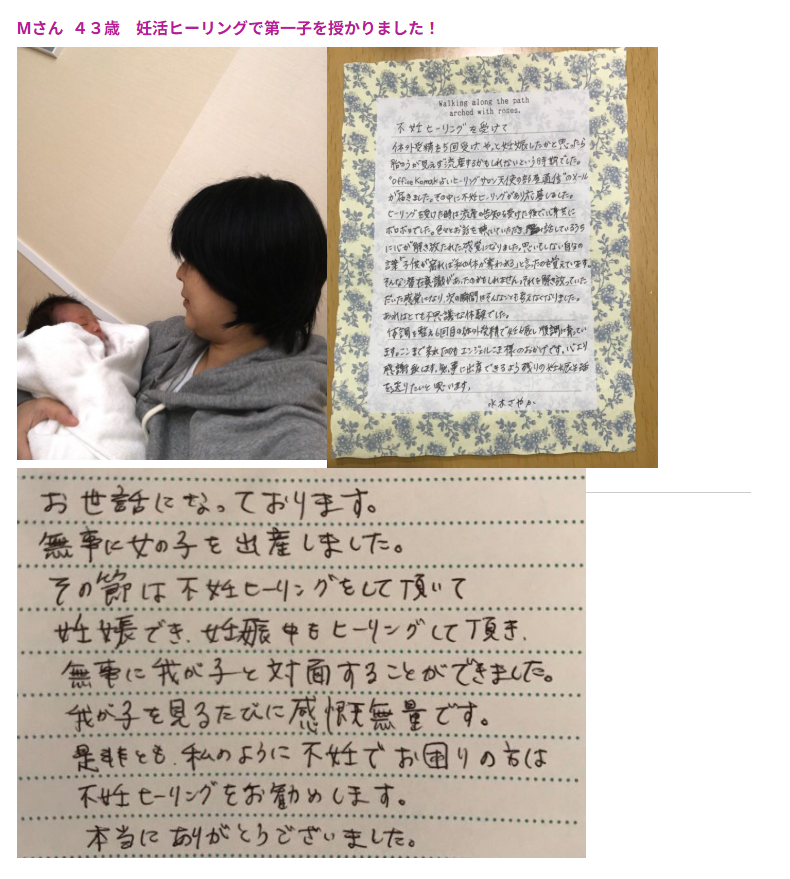 Mさん ４３歳　妊活ヒーリングで第一子を授かりました！
Walking along the path
arched with roses.
不妊ヒーリングを受けて
体外受精を5回受け やっと妊娠したかと思ったら
胎のうが見えず流産するかもしれないという時期でした。
"Office Komakよいヒーリングサロン 天使の部屋通信"のメール
が届きました。その中に不妊ヒーリングがあり応募しました。
ヒーリングを受けた時は流産の告知を受けた後で心身共に
ボロボロでした。色々とお話を聴いていただき、話しているうち
に心が解き放たれた感覚になりました。思いもしない自分の
言葉「子供が産れば私の体が奪われる」と言ったのを覚えています。
そんな潜在意識があったのかもしれません。それを解き放っていた
だいた感覚になり、次の瞬間はそんなことも考えなくなりました。
あれはとても不思議な体験でした。
体調を整え6回目の体外受精で妊娠し順調に育ってい
ます。ここまで来れたのも エンジェルこま様のおかげです。心より
感謝致します。無事に出産できるよう残りの妊娠生活
を送りたいと思います。
お世話になっております。
無事に女の子を出産しました。
その節は不妊ヒーリングをして頂いて
妊娠でき、妊娠中もヒーリングして頂き、
無事に我が子と対面することができました。
我が子を見るたびに感慨無量です。
是非とも、私のように不妊でお困りの方は
不妊ヒーリングをお勧めします。
本当にありがとうございました。